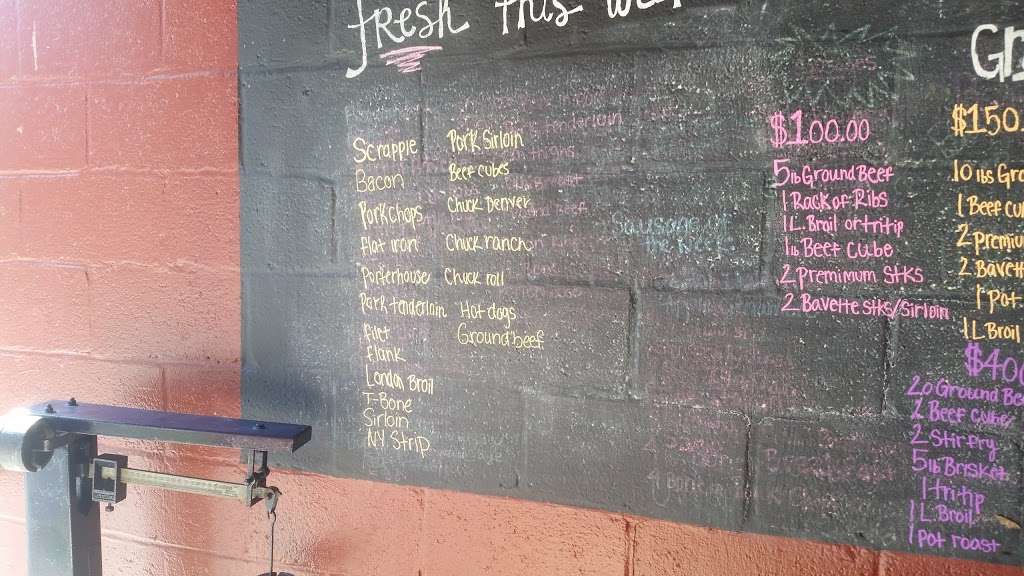 fresh this
Scrapple
Bacon
Pork chops
flat iron
Porterhouse
Pork tenderloin
filet
flank
London Broil
T-Bone
Sirloin
NY Strip
Pork Sirloin
Beef cubes
Chuck Denver
Chuck ranch
Chuck roll
Hot dogs
Ground beef
$100.00
5lb Ground Beef
1 Rack of Ribs
1 L. Broil or tritip
1lb Beef cube
2 premimum stks
2 Bavette stks/sirloin
$150.
10 lbs Gro
1 Beef Cu
2 premiu
2 Bavet
1 Pot
1 L. Broil
$400
20 Ground Bee
2 Beef cube
2 Stir fry
5lb Brisket
1 tritip
1 L. Broil
1 pot roast